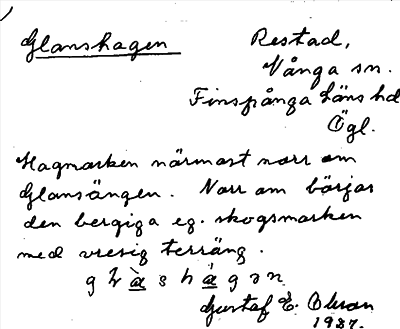 Glanshagen
Restad,
Vånga sn.
Finspånga läns hd
Ögl.
Hagmarken närmast norr om
Glansängen. Norr om börjar
den bergiga eg. skogsmarken
med vresig terräng.
Gustaf E. Olsson
1937.